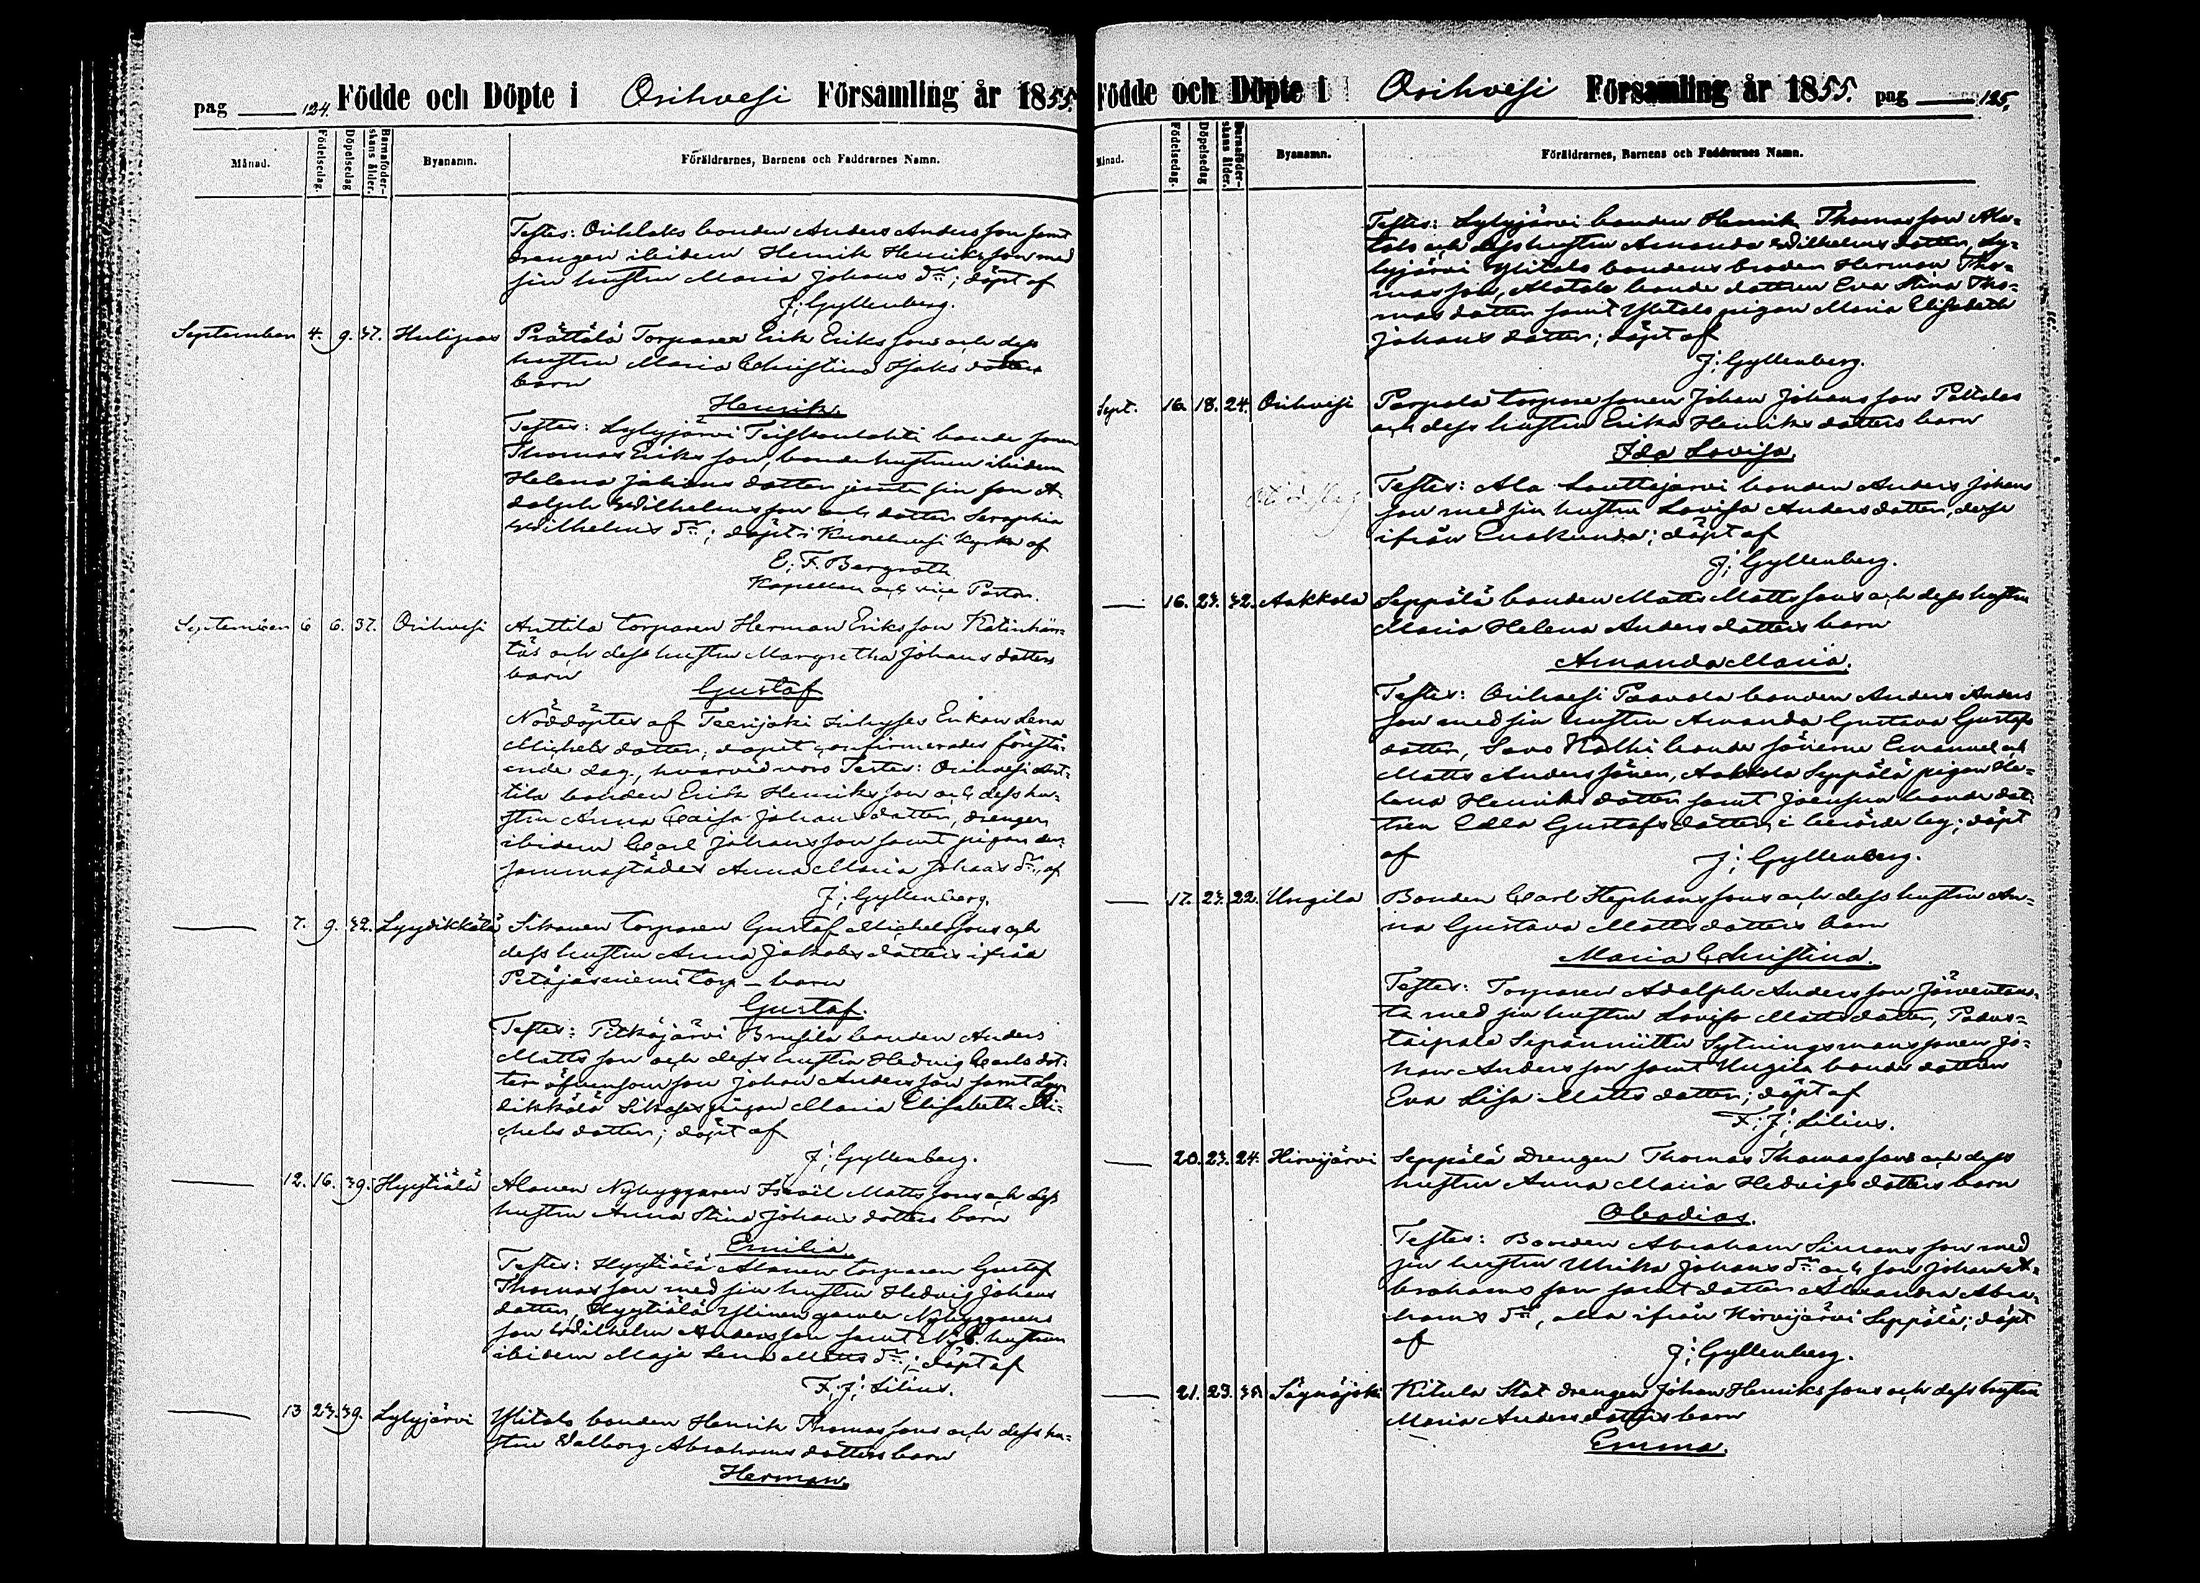 pag 124. Födde och Döpte i Orihvesi Församling år 1855.
Månad. Födelsedag. Döpelsedag Barnaföderskans ålder. Byanamn. Föräldrarnes, Barnens och Faddrarnes Namn.
Testes: bonden Anders Andersson samt
drengen ibidem Henrik Henriksson med
sin hustru Maria Johans dr; döpt af
J: Gyllenberg.
September 4. 9. 37. Hulipas Prättälä Torparen Erik Eriksons och dess
hustru Maria Christina Isaks dotters
barn
Henrik.
Testes: Lylyjärvi Teiskonlahti bonde sonen
Thomas Eriksson, bondehustrun ibidem
Helena Johans dotter jemte sin son A-
dolph Wilhelmsson och dotter Seraphia
Wilhelms dr; döpt i Kuorehvesi kyrka af
E. F. Bergroth
Kapellan och vice Pastor.
September 6 6. 37. Orihvesi Anttila torparen Herman Eriksson
och dess hustru Margretha Johans dotters
barn
Gustaf
Nöddöptes af Teerijoki Enkan Lena
Michels dotter, dopet confirmerades förestå-
ende dag, hvarvid voro Testes: Orihvesi Ant-
tila bonden Erik Henriksson och dess hu-
stru Anna Caisa Johans dotter, drengen
ibidem Carl Johansson samt pigan der-
sammastädes Anna Maria Johans dr, af
J: Gyllenberg.
— 7. 9. 32. Lyydikkälä Sikanen torparen Gustaf Michelssons och
dess hustru Anna Jakobs dotters ifrån
Petäjäsniemi torp — barn
Gustaf.
Testes: Pitkäjärvi Brusila bonden Anders
Mattsson och dess hustru Hedvig Carls dot-
ter äfvensom son Johan Andersson samt Lyy-
dikkälä pigan Maria Elisabeth Mi-
chels dotter; döpt af
J: Gyllenberg.
— 12. 16. 39. Hyytiälä Alanen Nybyggaren Israël Mattssons och dess
hustru Anna Stina Johans dotters barn
Emilia.
Testes: Hyytiälä Alanen torparen Gustaf
Thomasson med sin hustru Hedvig Johans
dotter, Hyytiälä Ylinen gamla Nybyggarens
son Wilhelm Andersson samt hustrun
ibidem Maja Lena Matts dr; döpt af
F: J: Lilius.
— 13 23. 39. Lylyjärvi Ylitalo bonden Henrik Thomassons och dess hu-
stru Valborg Abrahams dotters barn
Herman.
Födde och Döpte i Orihvesi Församling år 1855. pag 125.
Månad. Födelsedag. Döpelsedag Barnaföderskans ålder. Byanamn. Föräldrarnes, Barnens och Faddrarnes Namn.
Testes: Lylyjärvi bonden Henrik Thomasson Ala-
talo och dess hustru Amanda Wilhelms dotter, Ly-
lyjärvi Ylitalo bondens broder Herman Tho-
masson, Alatalo bonde dottren Eva Stina Tho-
mas dotter samt Ylitalo pigan Maria Elisabeth
Johans dotter; döpt af
J: Gyllenberg.
Sept. 16. 18. 24. Orihvesi Parpola torpare sonen Johan Johansson
och dess hustru Erika Henriks dotters barn
Ida Lovisa.
Testes: Ala Louttajärvi bonden Anders Johans
son med sin hustru Lovisa Anders dotter, desse
ifrån Eräkunda; döpt af
J: Gyllenberg.
— 16. 23. 32. Aakkola Seppälä bonden Matts Mattssons och dess hustru
Maria Helena Anders dotters barn
Amanda Maria.
Testes: Orihvesi Paavola bonden Anders Anders
son med sin hustru Amanda Gustava Gustafs
dotter, Savo bonde sönerne Emanuel och
Matts Anderssöner, Aakkola Seppälä pigan He-
lena Henriks dotter samt Joensuu bonde dot-
tren Edla Gustafs dotter i berörde by; döpt
af J: Gyllenberg.
— 17. 23. 22. Ungila Bonden Carl Stephanssons och dess hustru An-
na Gustava Matts dotters barn
Maria Christina.
Testes: Torparen Adolph Andersson Järventaus-
ta med sin hustru Lovisa Matts dotter, Padus-
taipale Sepänniittu Sytningsmanssonen Jo-
han Andersson samt Ungila bonde dottren
Eva Lisa Matts dotter; döpt af
F: J: Lilius.
— 20. 23. 24. Hirvijärvi Seppälä drengen Thomas Thomassons och dess
hustru Anna Maria Hedvigs dotters barn
Obadias.
Testes: Bonden Abraham Simonsson med
sin hustru Ulrika Johans dr och son Johan A-
brahamsson samt dotter Alexandra Abra-
hams dr, alla ifrån Hirvijärvi Seppälä; döpt
af J: Gyllenberg.
— 21. 23. 35. Säynäjoki Kitula Stat drengen Johan Henrikssons och dess hustru
Maria Anders dotters barn
Emma.